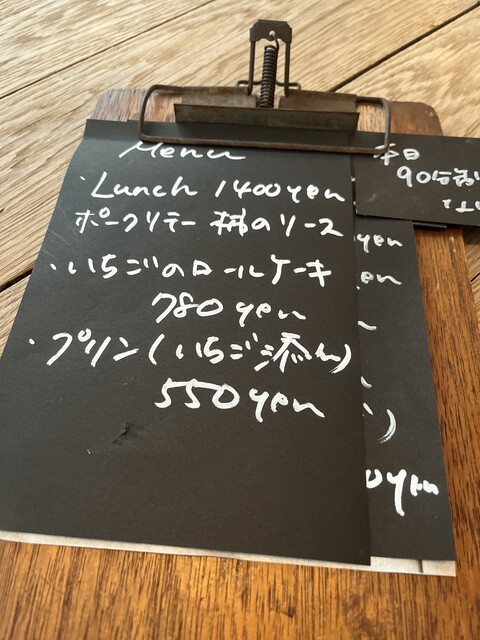 Menu
・Lunch 1400yen
ポークソテー 柿のソース
・いちごのロールケーキ
780yen
・プリン(いちご添え)
550yen
本日
90分
yen
en
0yen